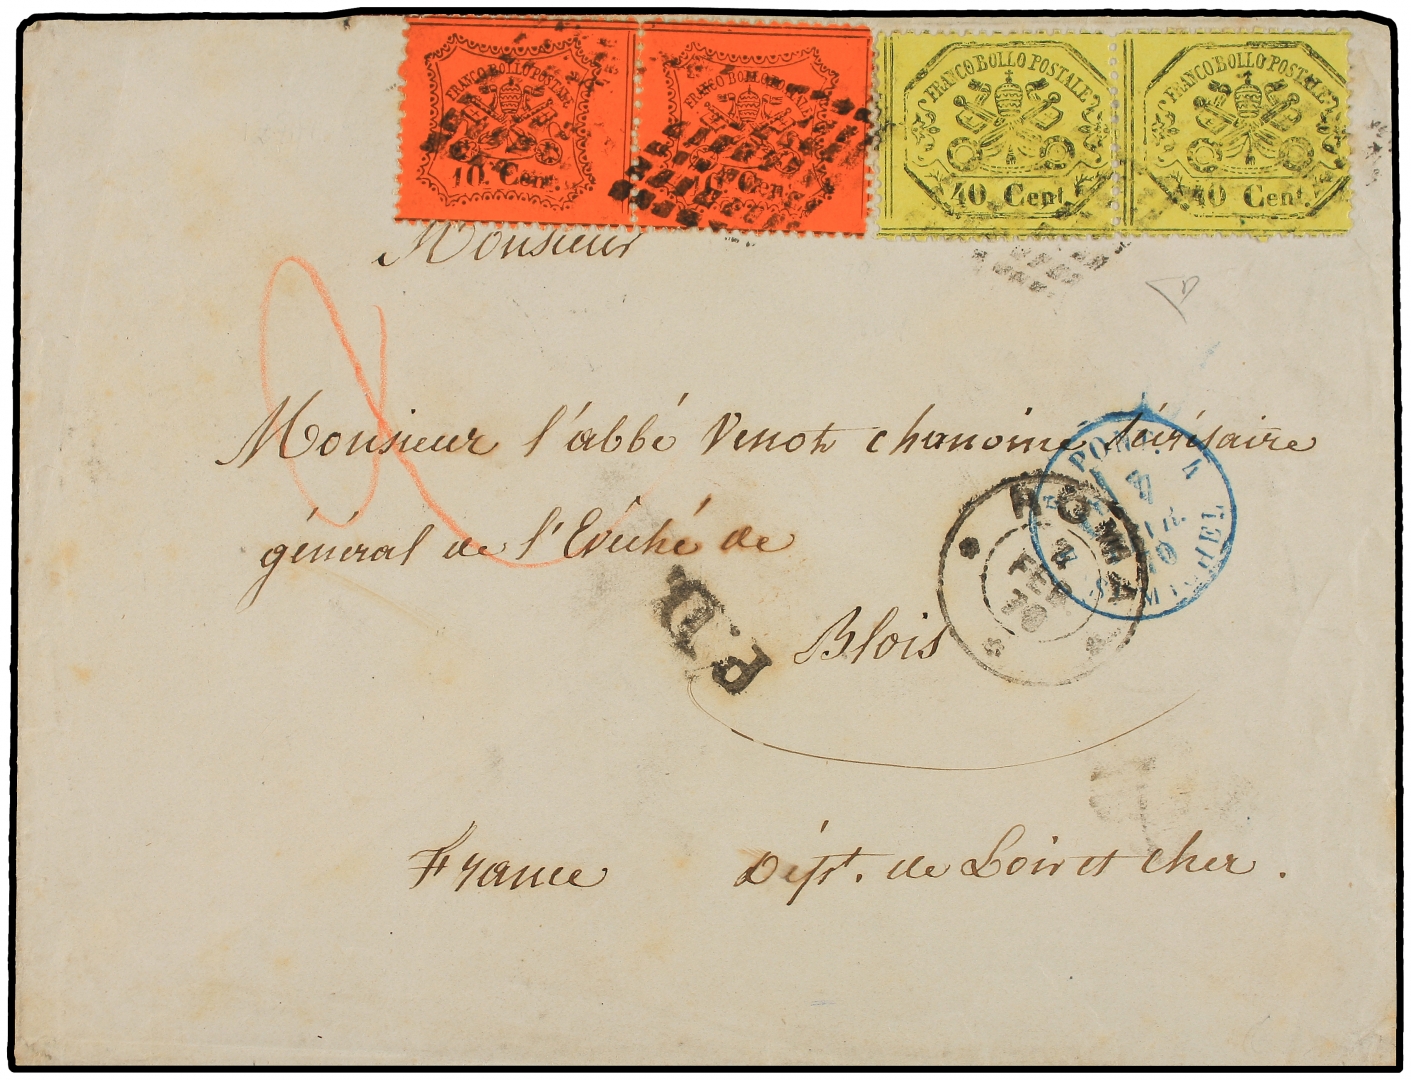 FRANCO BOLLO POSTALE
10. Cent.
FRANCO BOLLO POSTALE
Cent.
FRANCO BOLLO POSTALE
40 Cent.
FRANCO BOLLO POSTALE
40 Cent.
Monsieur
Monsieur l'abbé Venot chanoine
général de l'Evêché de
Blois
France Dépt. de Loir et Cher.
P.D.
ROMA
FEB
70
MICHEL